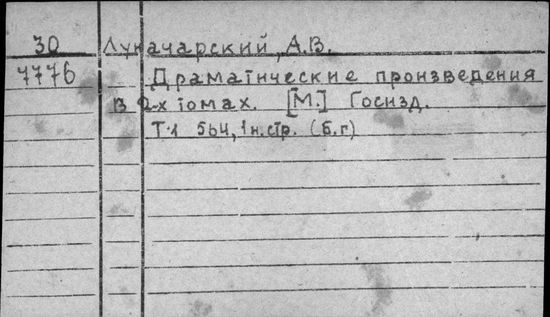 30 Луначарский, А.В.
7776 Драматические произведения
В 2-х томах. [М.] Госизд.
Т.1 564, 1 н.стр. (б.г)